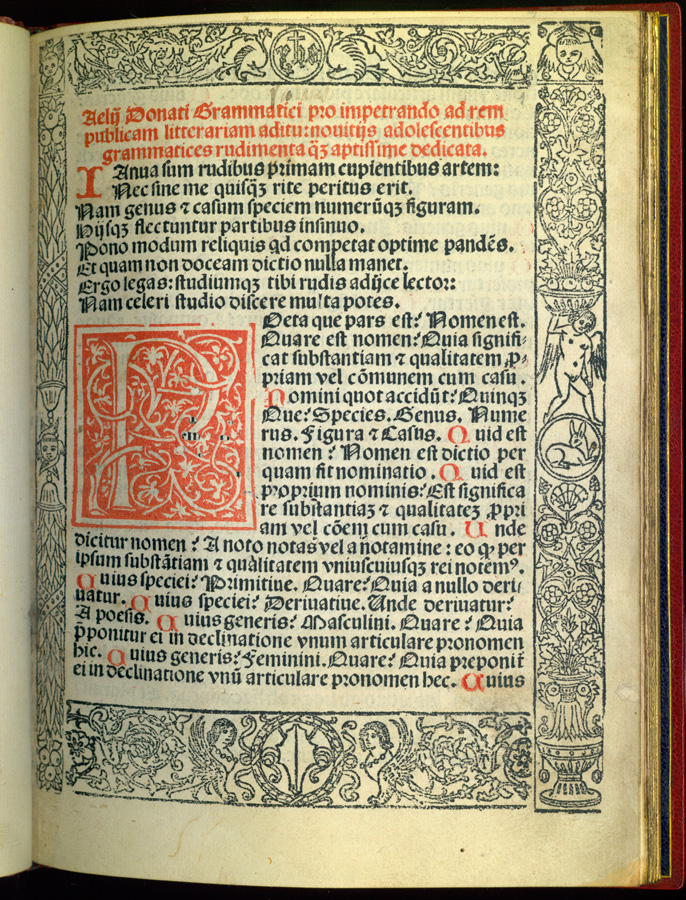 Aelij Donati Grammatici pro impetrando ad rem
publicam litterariam aditu: nouitijs adolescentibus
grammatices rudimenta q̄ꝫ aptissime dedicata.
IAnua sum rudibus primam cupientibus artem:
Nec sine me quisqꝫ rite peritus erit.
Nam genus ⁊ casum speciem numerūqꝫ figuram.
Hijsqꝫ flectuntur partibus insinuo.
Pono modum reliquis qd competat optime pandēs.
Et quam non doceam dictio nulla manet.
Ergo legas: studiumqꝫ tibi rudis adijce lector:
Nam celeri studio discere multa potes.
POeta que pars est? Nomen est.
Quare est nomen? Quia signifi-
cat substantiam ⁊ qualitatem ꝓ-
priam vel cōmunem cum casu.
Nomini quot accidūt? Quinqꝫ
Que? Species. Genus. Nume
rus. Figura ⁊ Casus. Quid est
nomen? Nomen est dictio per
quam fit nominatio. Quid est
proprium nominis? Est significa
re substantiaꝫ ⁊ qualitateꝫ ꝓpri
am vel cōem cum casu. Unde
dicitur nomen? A noto notas vel a notamine: eo ꝙ per
ipsum substātiam ⁊ qualitatem vniuscuiusqꝫ rei notemꝰ.
Cuius speciei? Primitiue. Quare? Quia a nullo deri-
uatur. Cuius speciei? Deriuatiue. Unde deriuatur?
A poesis. Cuius generis? Masculini. Quare? Quia
p̄ponitur ei in declinatione vnum articulare pronomen
hic. Cuius generis? Feminini. Quare? Quia preponit̄
ei in declinatione vnū articulare pronomen hec. Cuius